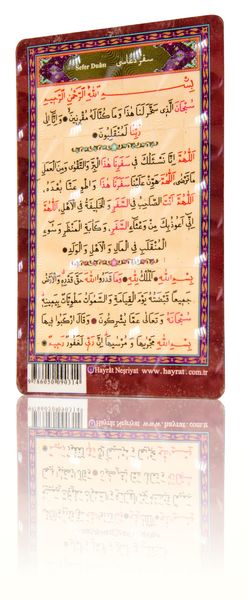 سفر دعاسی
Sefer Duâsı
بِسْمِ اللّٰهِ الرَّحْمٰنِ الرَّحِيمِ
سُبْحَانَ الَّذِي سَخَّرَ لَنَا هٰذَا وَمَا كُنَّا لَهُ مُقْرِنِينَ ۞ وَإِنَّا إِلَى
رَبِّنَا لَمُنْقَلِبُونَ ۞
اَللّٰهُمَّ إِنَّا نَسْئَلُكَ فِي سَفَرِنَا هٰذَا الْبِرَّ وَالتَّقْوٰى وَمِنَ الْعَمَلِ
مَا تَرْضٰى اَللّٰهُمَّ هَوِّنْ عَلَيْنَا سَفَرَنَا هٰذَا وَاطْوِ عَنَّا بُعْدَهُ
اَللّٰهُمَّ أَنْتَ الصَّاحِبُ فِي السَّفَرِ وَالْخَلِيفَةُ فِي الْأَهْلِ اَللّٰهُمَّ
إِنِّي أَعُوذُ بِكَ مِنْ وَعْثَاءِ السَّفَرِ وَكَآبَةِ الْمَنْظَرِ وَسُوءِ
الْمُنْقَلَبِ فِي الْمَالِ وَالْأَهْلِ وَالْوَلَدِ
بِسْمِ اللّٰهِ الْمَلِكُ لِلّٰهِ ۞ وَمَا قَدَرُوا اللّٰهَ حَقَّ قَدْرِهِ وَالْأَرْضُ
جَمِيعًا قَبْضَتُهُ يَوْمَ الْقِيَامَةِ وَالسَّمٰوَاتُ مَطْوِيَّاتٌ بِيَمِينِهِ
سُبْحَانَهُ وَتَعَالٰى عَمَّا يُشْرِكُونَ ۞ وَقَالَ ارْكَبُوا فِيهَا
بِسْمِ اللّٰهِ مَجْرٰيهَا وَمُرْسٰيهَا إِنَّ رَبِّي لَغَفُورٌ رَحِيمٌ
Hayrât Neşriyat www.hayrat.com.tr
9786050090314